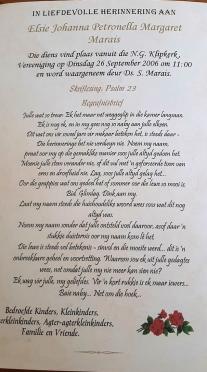 IN LIEFDEVOLLE HERINNERING AAN
Elsie Johanna Petronella Margaret
Marais
Die diens vind plaas vanuit die N.G. Klipkerk,
Vereeniging op Dinsdag 26 September 2006 om 11:00
en word waargeneem deur Ds. S. Marais.
Skriflesing: Psalm 23
Begrafnisbrief
Julle wat so treur. Ek het maar net weggeglip in die kamer langsaan.
Ek is nog ek, en in my gees nog so naby aan julle elkeen.
Dit wat ons vir mekaar beteken het, is steeds daar -
Die herinneringe het nie verdwyn nie. Noem my naam,
praat oor my op die gemaklike manier soos julle altyd gedoen het.
Moenie julle stem verander nie, of dit vul met 'n geforseerde toon van
erns en droefheid nie. Lag, soos julle altyd gelag het...
Oor die grappies wat ons gedeel het of sommer oor die lewe so mooi is.
Bid. Glimlag. Dink aan my.
Laat my naam steeds die huishoudelike woord wees soos wat dit nog
altyd was.
Noem my naam sonder dat julle ontsteld voel daaroor, asof daar 'n
stukkie duisternis oor my naam kom lê het.
Die lewe is steeds vol betekenis - sinvol en die moeite werd... dit is 'n
onbreekbare geheel en voortsetting. Waarom sou ek uit julle gedagtes
wees, net omdat julle my nie meer kan sien nie?
Ek wag vir julle, my geliefdes. Vir 'n kort rukkie is ek maar iewers...
Baie naby... Net om die hoek...
Bedroefde Kinders, Kleinkinders,
Agter-agterkleinkinders,
Familie en Vriende.